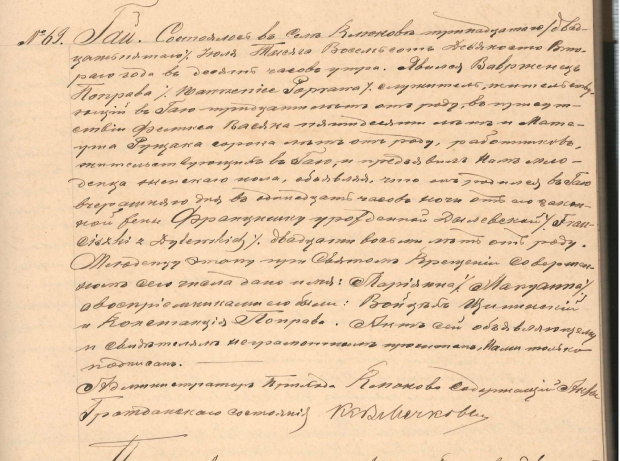 № 69. Гай. Состоялось въ селѣ Клюковѣ тринадцатаго /двад-
цать пятаго/ Іюля Тысяча Восемьсотъ Девяносто Вто-
раго года въ десять часовъ утра. Явился Вавржинецъ
Поправа /Wawrzeniec Poprawa/ служитель, жительству-
ющій въ Гаю тридцати лѣтъ отъ роду, въ присут-
ствіи Феликса пятидесяти лѣтъ и Мате-
уша сорока лѣтъ отъ роду, работниковъ,
жительствующихъ въ Гаю, и предъявилъ Намъ мла-
денца женскаго пола, объявляя, что онъ родился въ Гаю
вчерашняго дня въ одинадцать часовъ ночи отъ его закон-
ной жены Францишки урожденной Дылевской /Fran-
ciszki z Dylewskich/. двадцати восьми лѣтъ отъ роду.
Младенцу этому при Святомъ Крещеніи совершен-
номъ сего числа дано имя: Маріянна /Maryanna/
а воспріемниками его были: Войцѣхъ
и Констанція Поправа. Актъ сей объявляющему
и свидѣтелямъ неграмотнымъ прочитанъ, Нами только
подписанъ.
Администраторъ Прихода Клюково содержащій Акты
Гражданскаго состоянія